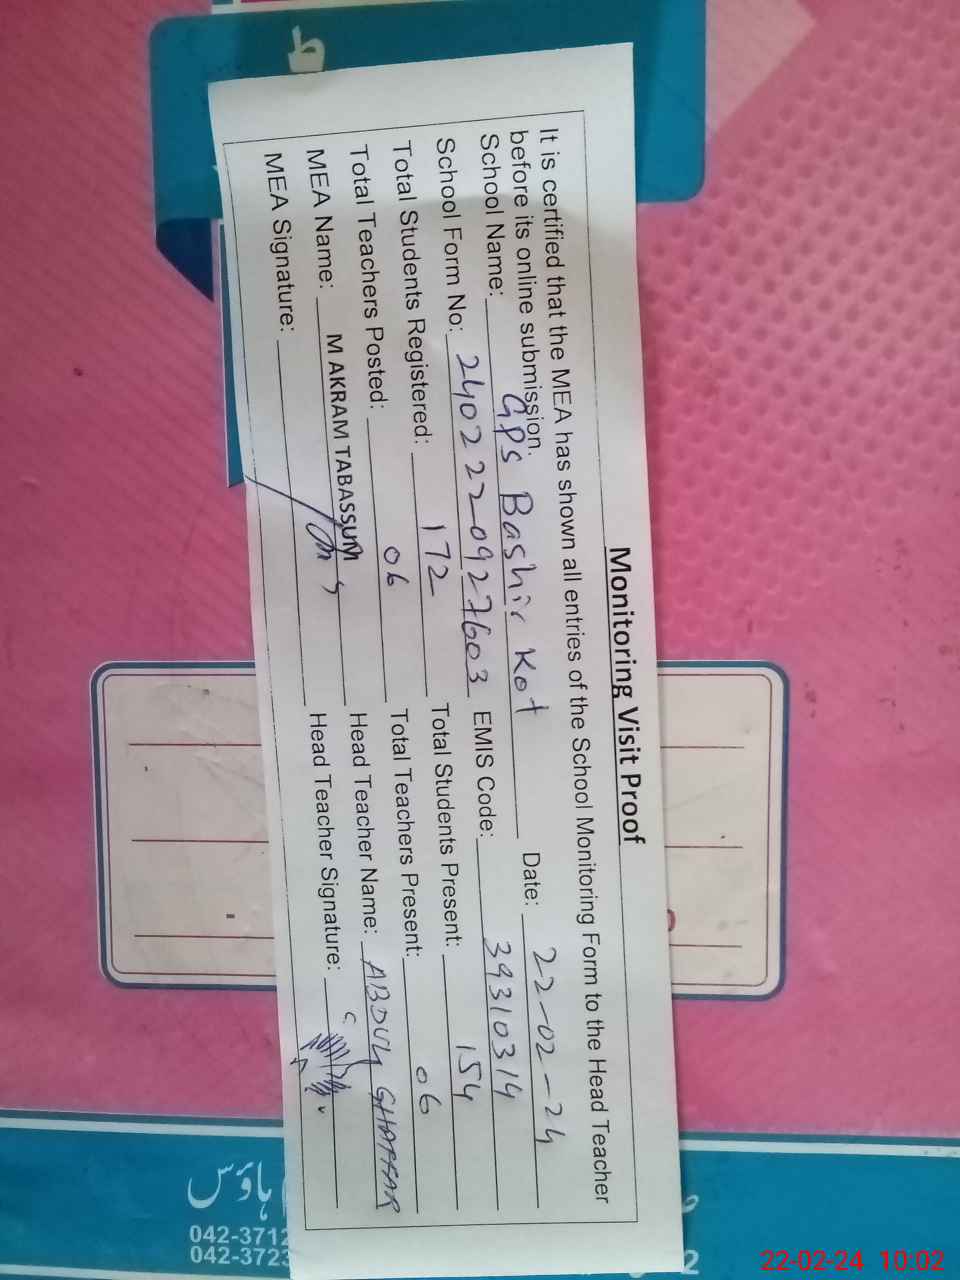 Monitoring Visit Proof
It is certified that the MEA has shown all entries of the School Monitoring Form to the Head Teacher
before its online submission.
School Name: GPS Bashir Kot Date: 22-02-24
School Form No: 2402220927603 EMIS Code: 39310314
Total Students Registered: 172 Total Students Present: 154
Total Teachers Posted: 06 Total Teachers Present: 06
MEA Name: M AKRAM TABASSUM Head Teacher Name: ABDUL GHAFFAR
MEA Signature: Head Teacher Signature:
ہاؤس
042-3712
042-3723
2
22-02-24 10:02